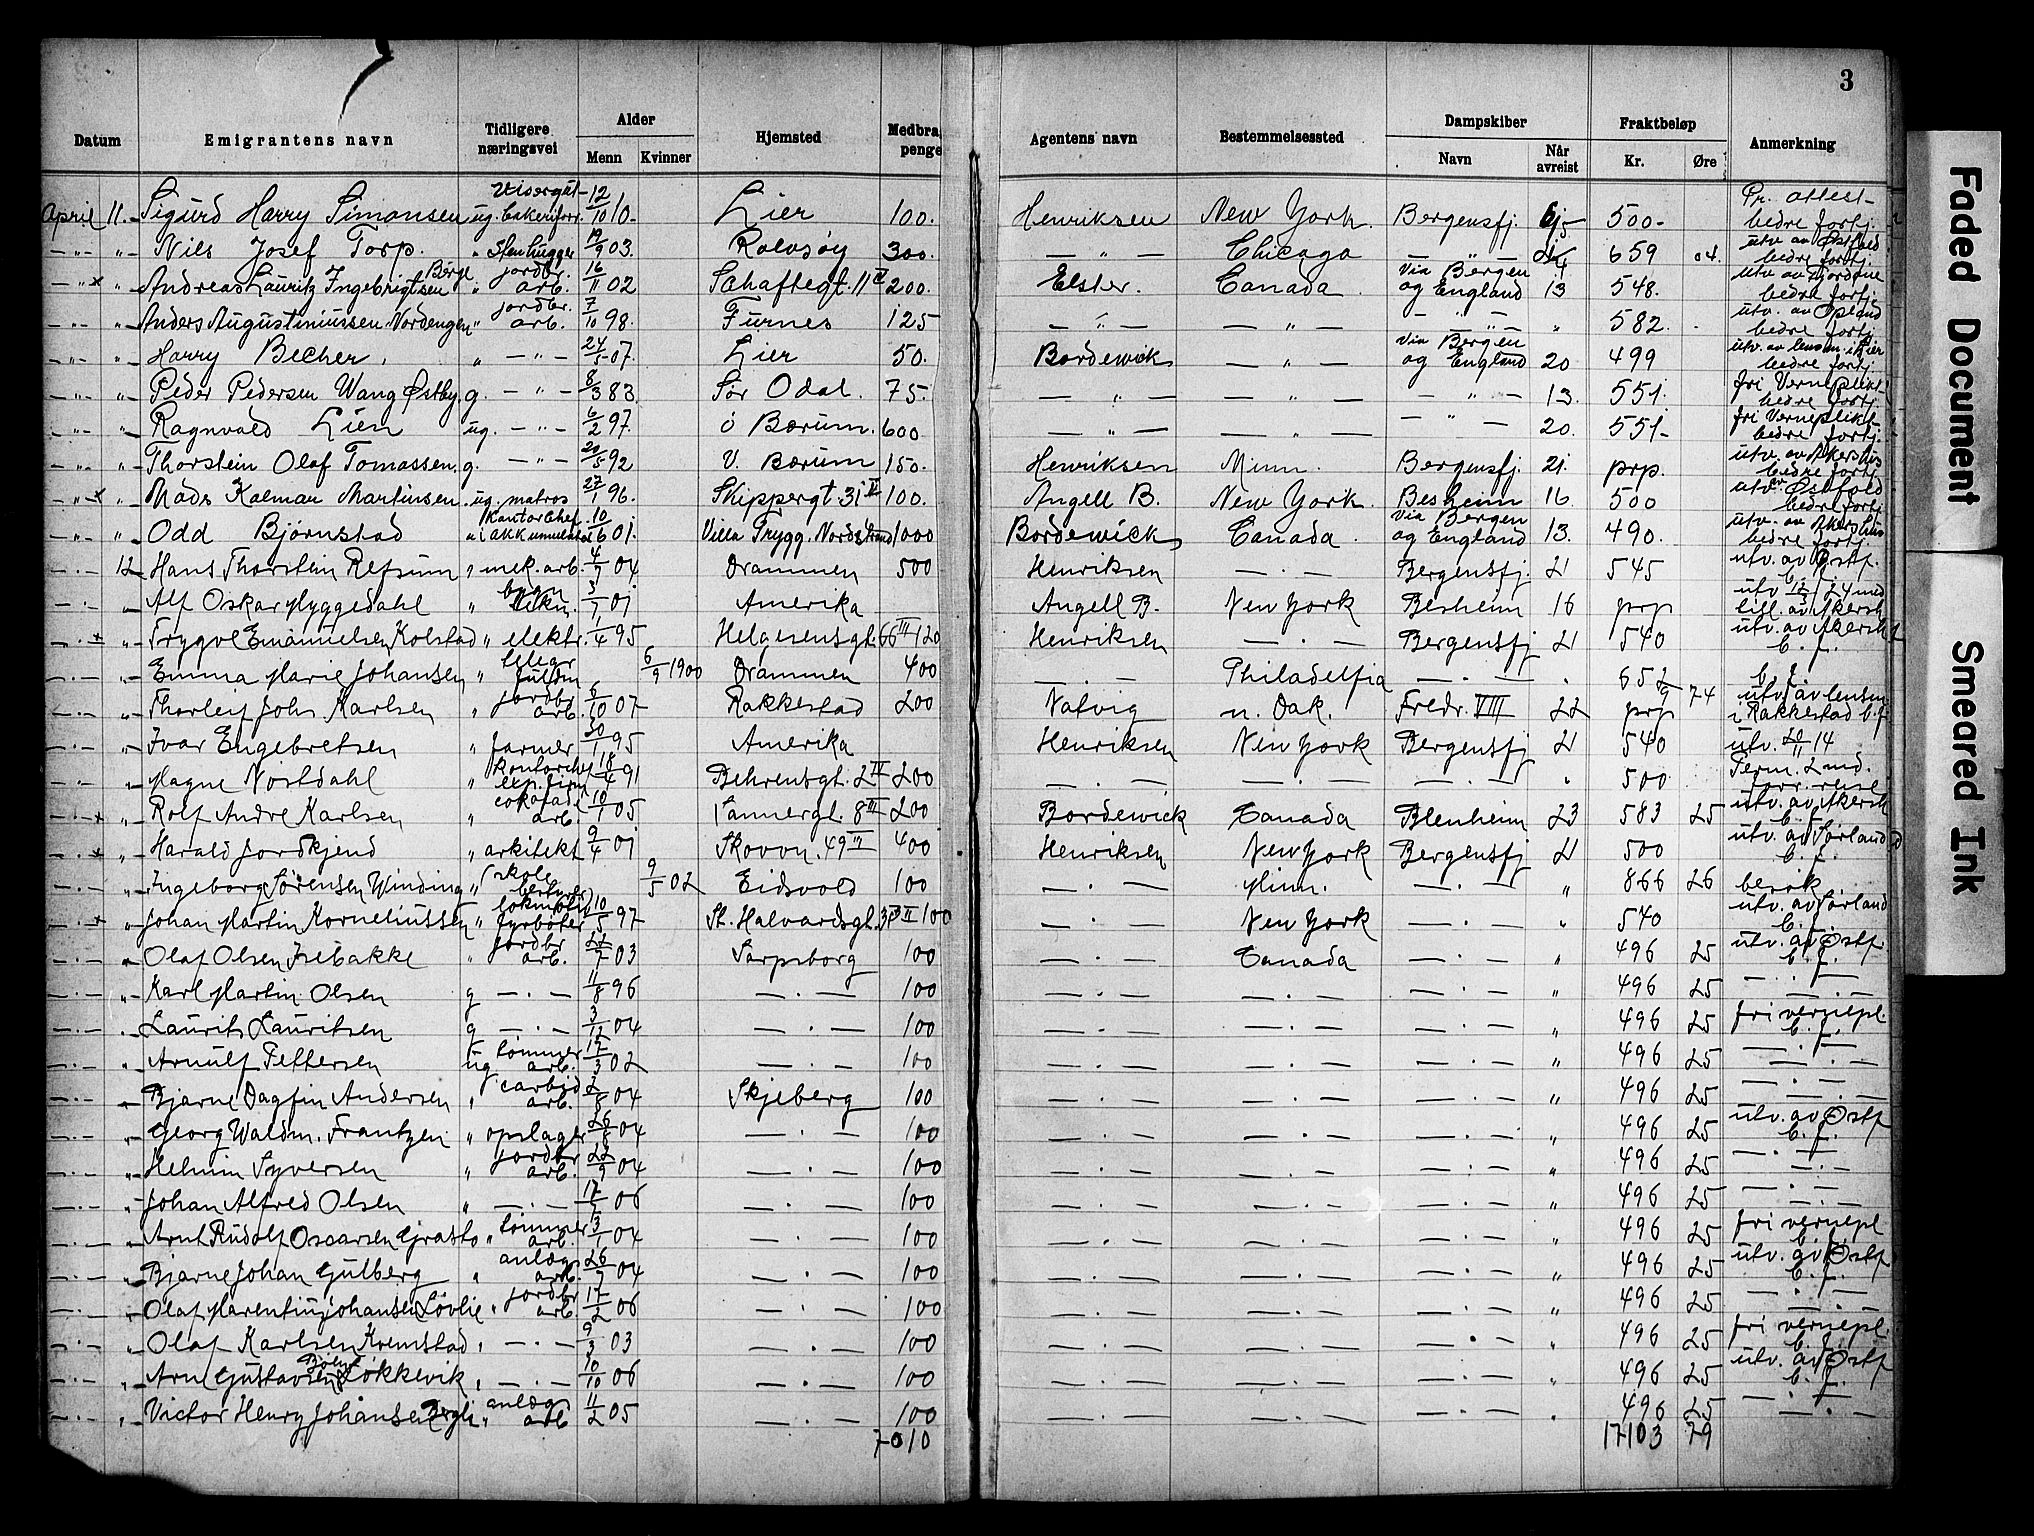 3
Datum Emigrantens navn Tidligere næringsvei Alder Menn Kvinner Hjemsted Medbra penge Agentens navn Bestemmelsessted Dampskiber Navn Når avreist Fraktbeløp Kr. Øre Anmerkning
April 11. Sigurd Harry Simonsen ug. 12/10 10. Lier 100. Henriksen New York. Bergensfj. 500- Pr. attest- bedre fortj.
" Nils Josef Torp. " Stenhugger 19/9 03. Rolvsøy 300. — " — Chicago — " — 659 04. utv. av Østfold bedre fortj.
x " Andreas Lauritz Ingebrigtsen Berge " jordbr. arb. 16/11 02 Schaftegt. 11 200. Elster. Canada via Bergen og England 13 548. bedre fortj.
" Anders Augustinussen Nordengen " jordbr. arb. 7/10 98. Furnes 125 — " — — " — — " — " 582. utv. av Opland bedre fortj.
" Harry Becher. " — " — 24/5 07. Lier 50. Bordewick — " — via Bergen og England 20 499 utv. av lensm. i Lier bedre fortj.
" Peder Pedersen Wang Østby g. — " — 8/3 83. Sør Odal. 75. — " — — " — — " — 13. 551. fri Verneplikt bedre fortj.
" Ragnvald Lien ug. — " — 6/2 97. Ö Bærum. 600 — " — — " — — " — 20. 551- fri Verneplikt- bedre fortj.
" Thorstein Olaf Tomassen. g. — " — 20/5 92 V. Bærum 150. Henriksen Minn. Bergensfj. 21. prp. utv. av Akershus bedre fortj.
x " Mads Kalmar Martinsen ug. matros 27/1 96. Skippergt. 31 II 100. Angell B. New York. Besheim 16. 500 utv. av Østfold bedre fortj.
" Odd Bjørnstad " kontorchef i akkumulator 10/6 01. Villa Trygg. Nordstrand 1000 Bordewick Canada. via Bergen og England 13. 490. utv. av Akershus bedre fortj.
12 Hans Thorstein Refsum " mek. arb. 4/7 04 Drammen 500 Henriksen — . — Bergensfj. 21 545 utv. av Østf. b. f.
" Alf Oskar Hyggedahl " bygn. tekn. 3/1 01 Amerika Angell B. New York Besheim 16 prp
x " Trygve Emanuelsen Kolstad " elektr. 1/4 95 Helgesensgt. 66 III 120 Henriksen — . — Bergensfj 21 540 utv. av Akersh b. f.
" Emma Marie Johansen " telegr. fuldm 6/9 1900 Drammen 400 — . — Philadelfia — . — 652 74 b. f.
" Thorleif Johs Karlsen " jordbr. arb. 6/10 07 Rakkestad 200 Natvig n. Dak. Fredr. VIII 22 prp utv. av lensm i Rakkestad b. f.
" Ivar Engebretsen " farmer 30/1 95 Amerika Henriksen New York Bergensfj 21 540 utv. 20/11 14
" Magne Nöstdahl " kontorchef 18/4 91 Behrensgt. 2 IV 200 — . — — . — — . — " 500 Perm. 2 md. forr. reise
x " Rolf Andre Karlsen " cokolade arb. 10/1 05 Sannergt. 8 III 200 Bordewick Canada Blenheim 23 583 25 utv. av Akersh b. f.
x " Harald Jordkjend " arkitekt 9/4 01 Skovvn. 49 400 Henriksen New York Bergensfj 21 500 utv. av Sørland b. f.
" Ingeborg Sørensen Winding " skole 9/5 02 Eidsvold 100 — . — Minn. — . — " 866 26 besøk
x " Johan Martin Korneliussen " lokmotiv fyrböter 10/5 97 St. Halvardsgt. 100 — . — New York — . — " 540 utv. av Sørland b. f.
" Olaf Olsen Isebakke " jordbr arb. 22/7 03 Sarpsborg 100 Canada — . — " 496 25 utv. av Østf. b. f.
" Karl Martin Olsen g — . — 11/8 96 — . — 100 — . — — . — — . — " 496 25 — . —
" Laurits Lauritsen g — . — 3/12 04 — . — 100 — . — — . — — . — " 496 25 fri vernepl. b. f.
" Arnulf Pettersen ug tømmer arb. 17/3 02 — . — 100 — . — — . — — . — " 496 25 — . —
" Bjarne Dagfin Andersen " carbid arb. 2/8 04 Skjeberg 100 — . — — . — — . — " 496 25 — . —
" Georg Waldm. Frantzen " opslager 26/8 04 — . — 100 — . — — . — — . — " 496 25 utv. av Østf b. f.
" Helmin Syversen " jordbr arb. 22/9 04 — . — 100 — . — — . — — . — " 496 25 — . —
" Johan Alfred Olsen " — . — 06 — . — 100 — . — — . — — . — " 496 25 — . —
" Arnt Rudolf Oscarsen " tømmer arb. 3/1 04 — . — 100 — . — — . — — . — " 496 25 fri vernepl b. f.
" Bjarne Johan Gulberg " anlægs arb. 26/7 04 — . — 100 — . — — . — — . — " 496 25 utv. av Østf b. f.
" Olaf Marentius Johansen Løvlie " jordbr arb. 17/2 06 — . — 100 — . — — . — — . — " 496 25 — . —
" Olaf Karlsen Kvemstad " — . — 9/3 03 — . — 100 — . — — . — — . — " 496 25 fri vernepl. b. f.
" Arne Gustavsen Løkkevik " — . — 10/10 06 — . — 100 — . — — . — — . — " 496 25 utv. av Østf b. f.
" Victor Henry Johansen " anlægs arb 11/2 05 — . — 100 — . — — . — — . — " 496 25 — . —
7010 17103 79
Faded Document
Smeared Ink